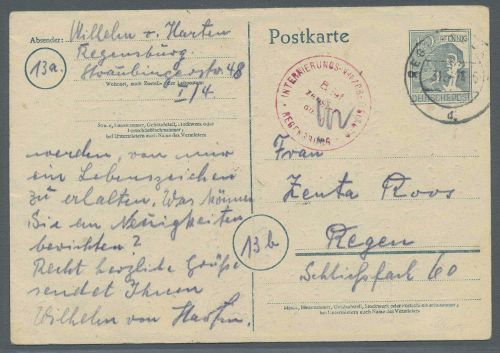 Absender: Wilhelm v. Harten
Regensburg
Straubingerstr. 48
I/4
13a
Wohnort, auch Zustell- oder Leitpostamt
Straße, Hausnummer, Gebäudeteil, Stockwerk oder
Postschließfachnummer;
bei Untermietern auch Name des Vermieters
werden, von mir
ein Lebenszeichen
zu erhalten. Was können
Sie an Neuigkeiten
berichten?
Recht herzliche Grüße
sendet Ihnen
Wilhelm von Harten.
Postkarte
INTERNIERUNGS-
REGENSBURG
PFENNIG
DEUTSCHE POST
REG
d
Frau
Zenta Roos
13b
Regen
Schließfach 60
Straße, Hausnummer, Gebäudeteil, Stockwerk oder Postschließfachnummer;
bei Untermietern auch Name des Vermieters